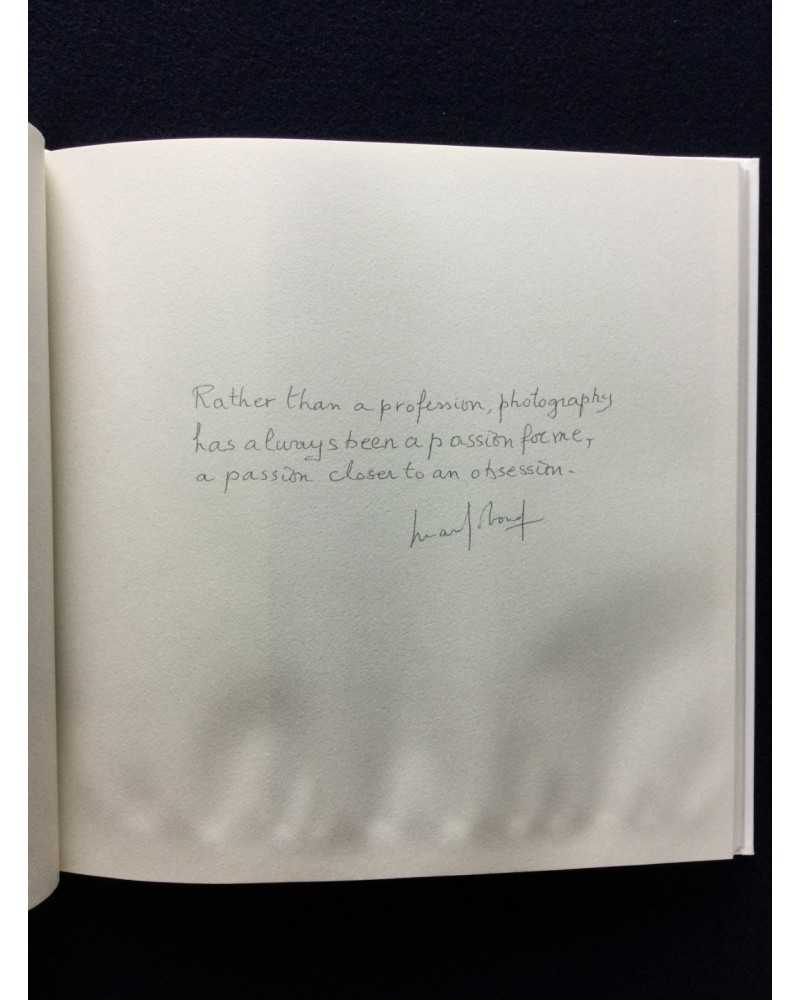 Rather than a profession, photography
has always been a passion for me,
a passion closer to an obsession.